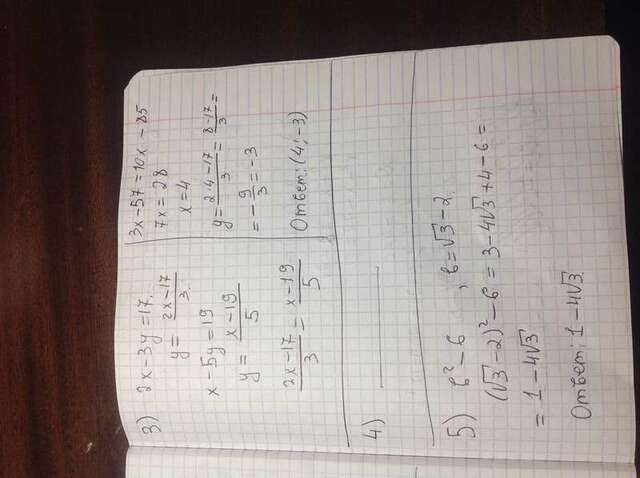 3) 2x-3y=17.
y= 2x-17/3.
x-5y=19
y= x-19/5
2x-17/3 = x-19/5
3x-57=10x-85
7x=28
x=4
y= 2·4-17/3 = 8-17/3 =
= -9/3 = -3
Ответ: (4; -3)
4)
5) b²-6 , b=√3-2.
(√3-2)²-6 = 3-4√3+4-6 =
= 1-4√3
Ответ: 1-4√3.